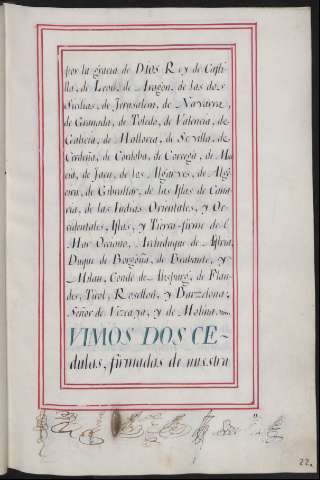 por la gracia de DIOS Rey de Casti-
lla, de Leon, de Aragon, de las dos
Sicilias, de Jerusalem, de Navarra,
de Granada, de Toledo, de Valencia, de
Galicia, de Mallorca, de Sevilla, de
Cerdeña, de Cordoba, de Corcega, de Mur-
cia, de Jaen, de los Algarves, de Alge-
cira, de Gibraltar, de las Islas de Cana-
ria, de las Indias Orientales, y Oc-
cidentales, Islas, y Tierra-firme de l
Mar Occeano, Archiduque de Austria,
Duque de Borgoña, de Brabante, y
Milan, Conde de Abspurg, de Flan-
des, Tirol, Rosellon, y Barzelona,
Señor de Vizcaya, y de Molina.
VIMOS DOS CE-
dulas, firmadas de nuestra
22.